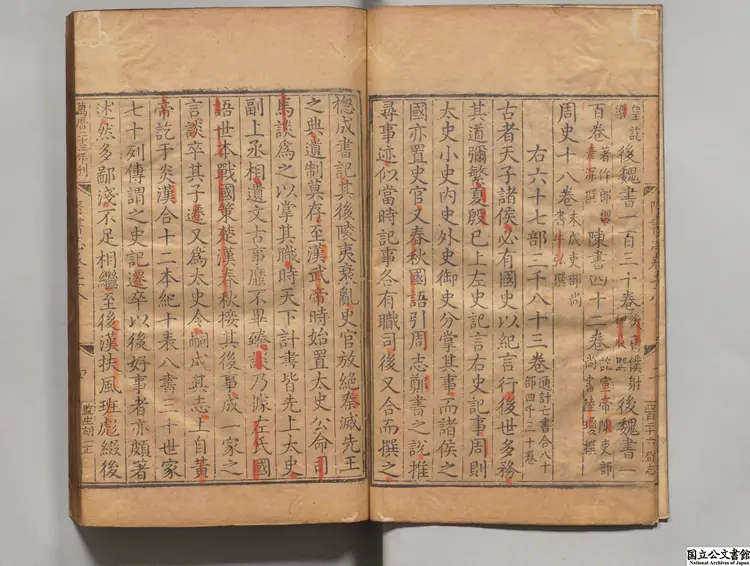 後魏書一百三十卷 後齊僕射魏收撰 後魏書一
百卷 著作郎魏彥深撰 陳書四十二卷 訖宣帝陳吏部尚書陸瓊撰
周史十八卷 未成吏部尚書牛弘撰
右六十七部三千八十三卷 通計亡書合八十部四千三十卷
古者天子諸侯必有國史以紀言行後世多務
其道彌繁夏殷已上左史記言右史記事周則
太史小史內史外史御史分掌其事而諸侯之
國亦置史官又春秋國語引周志鄭書之說推
尋事迹似當時記事各有職司後又合而撰之
揔成書記其後陵夷衰亂史官放絕秦滅先王
之典遺制莫存至漢武帝時始置太史公命司
馬談爲之以掌其職時天下計書皆先上太史
副上丞相遺文古事靡不畢臻談乃據左氏國
語世本戰國策楚漢春秋接其後事成一家之
言談卒其子遷又爲太史令嗣成其志上自黃
帝訖于炎漢合十二本紀十表八書三十世家
七十列傳謂之史記遷卒以後好事者亦頗著
述然多鄙淺不足相繼至後漢扶風班彪綴後
萬曆二十三年刊
監生胡正
国立公文書館
National Archives of Japan